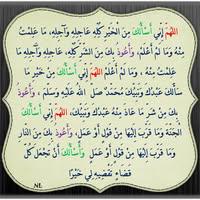 اللهُمَّ إِنِّي أَسْأَلُكَ مِنَ الْخَيْرِ كُلِّهِ عَاجِلِهِ وَآجِلِهِ، مَا عَلِمْتُ
مِنْهُ وَمَا لَمْ أَعْلَمْ، وَأَعُوذُ بِكَ مِنَ الشَّرِّ كُلِّهِ، عَاجِلِهِ وَآجِلِهِ مَا
عَلِمْتُ مِنْهُ، وَمَا لَمْ أَعْلَمْ اللهُمَّ إِنِّي أَسْأَلُكَ مِنْ خَيْرِ مَا
سَأَلَكَ عَبْدُكَ وَنَبِيُّكَ مُحَمَّدٌ صَلَّى اللهُ عَلَيْهِ وَسَلَّمَ ، وَأَعُوذُ
بِكَ مِنْ شَرِّ مَا عَاذَ مِنْهُ عَبْدُكَ وَنَبِيُّكَ، اللهُمَّ إِنِّي أَسْأَلُكَ
الْجَنَّةَ وَمَا قَرَّبَ إِلَيْهَا مِنْ قَوْلٍ أَوْ عَمَلٍ، وَأَعُوذُ بِكَ مِنَ النَّارِ
وَمَا قَرَّبَ إِلَيْهَا مِنْ قَوْلٍ أَوْ عَمَلٍ وَأَسْأَلُكَ أَنْ تَجْعَلَ كُلَّ
قَضَاءٍ تَقْضِيهِ لِي خَيْرًا
NE